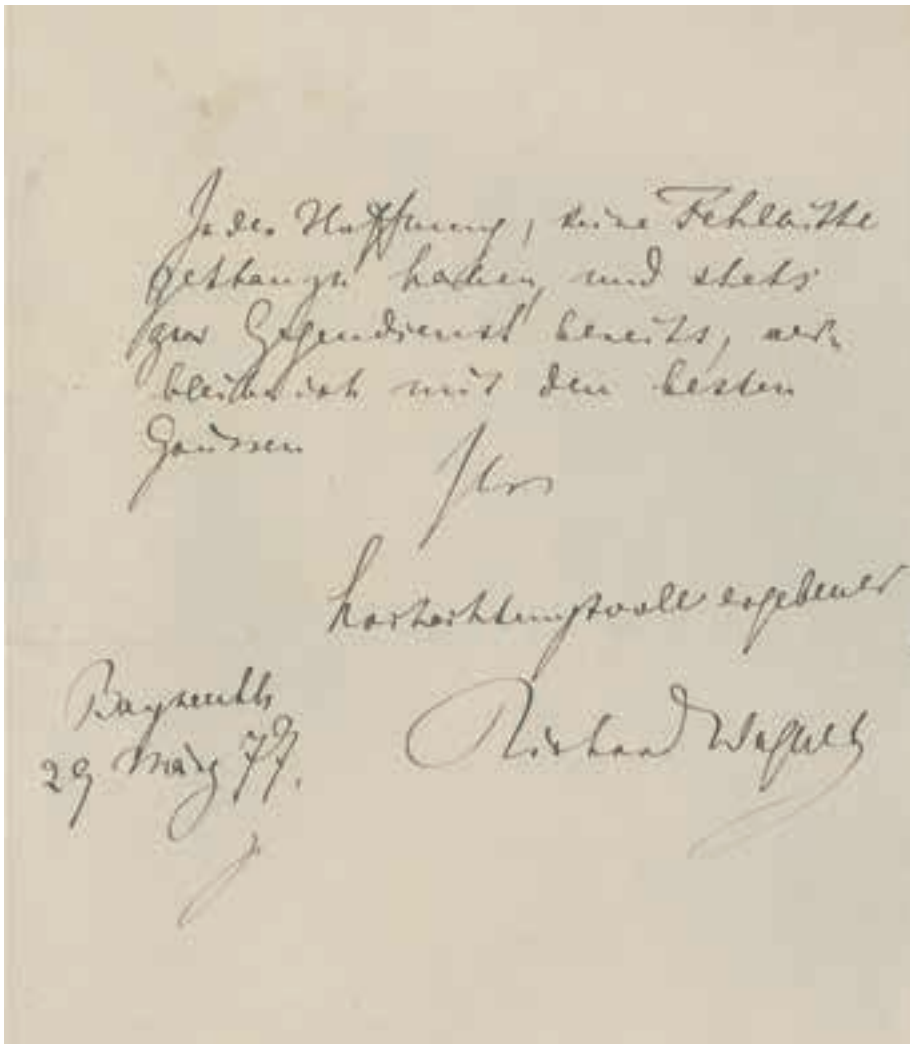 In der Hoffnung, keine Fehlbitte
gethan zu haben, und stets
zum Gegendienst bereit, ver-
bleibe ich mit den besten
Grüssen
Ihr
hochachtungsvoll ergebener
Richard Wagner
Bayreuth
29 März 77.